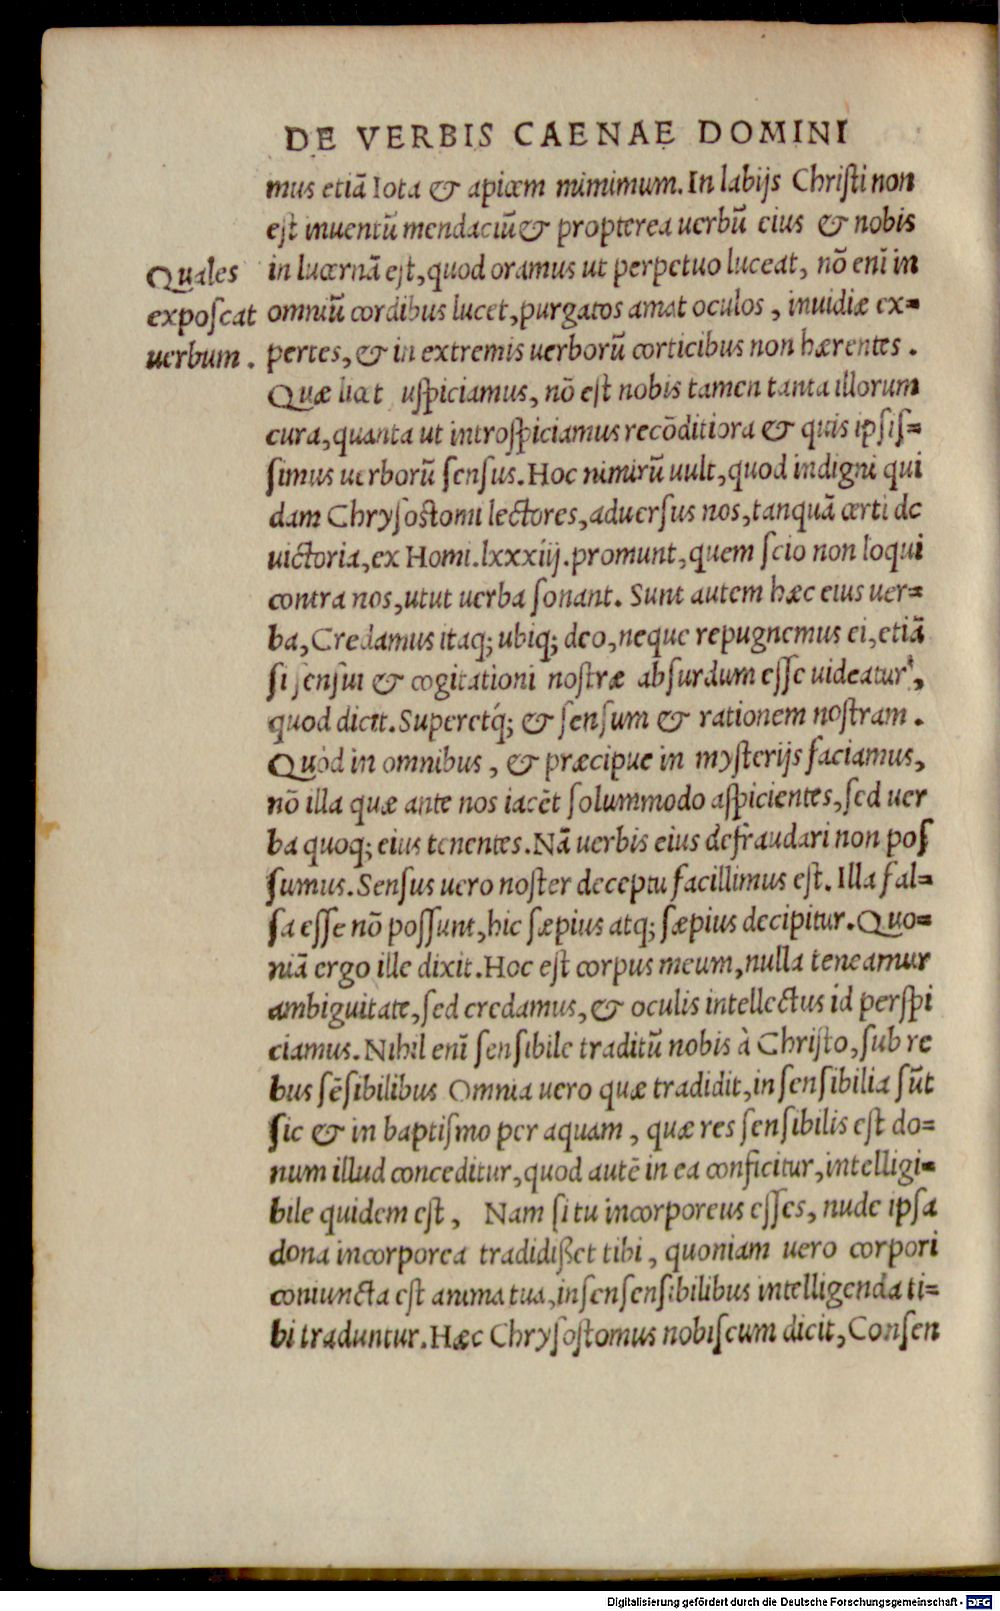 DE VERBIS CAENAE DOMINI
mus etiã Iota & apicem mimimum. In labijs Christi non
est inuentũ mendaciũ & propterea uerbũ eius & nobis
Quales
exposcat
uerbum.
in lucernã est, quod oramus ut perpetuo luceat, nõ enĩ in
omniũ cordibus lucet, purgatos amat oculos, inuidiæ ex=
pertes, & in extremis uerborũ corticibus non hærentes.
Quæ licet uspiciamus, nõ est nobis tamen tanta illorum
cura, quanta ut introspiciamus recõditiora & quis ipsis=
simus uerborũ sensus. Hoc nimirũ uult, quod indigni qui
dam Chrysostomi lectores, aduersus nos, tanquã certi de
uictoria, ex Homi. lxxxiij. promunt, quem scio non loqui
contra nos, utut uerba sonant. Sunt autem hæc eius uer=
ba, Credamus itaq; ubiq; deo, neque repugnemus ei, etiã
si sensui & cogitationi nostræ absurdum esse uideatur,
quod dicit. Superetq́; & sensum & rationem nostram.
Quòd in omnibus, & præcipue in mysterijs faciamus,
nõ illa quæ ante nos iacẽt solummodo aspicientes, sed uer
ba quoq; eius tenentes. Nã uerbis eius defraudari non pos
sumus. Sensus uero noster deceptu facillimus est. Illa fal=
sa esse nõ possunt, hic sæpius atq; sæpius decipitur. Quo=
niã ergo ille dixit. Hoc est corpus meum, nulla teneamur
ambiguitate, sed credamus, & oculis intellectus id perspi
ciamus. Nihil enĩ sensibile traditũ nobis à Christo, sub re
bus sẽsibilibus Omnia uero quæ tradidit, insensibilia sũt
sic & in baptismo per aquam, quæ res sensibilis est do=
num illud conceditur, quod autẽ in ea conficitur, intelligi=
bile quidem est, Nam si tu incorporeus esses, nude ipsa
dona incorporea tradidißet tibi, quoniam uero corpori
coniuncta est anima tua, insensensibilibus intelligenda ti=
bi traduntur. Hæc Chrysostomus nobiscum dicit, Consen
Digitalisierung gefördert durch die Deutsche Forschungsgemeinschaft - DFG